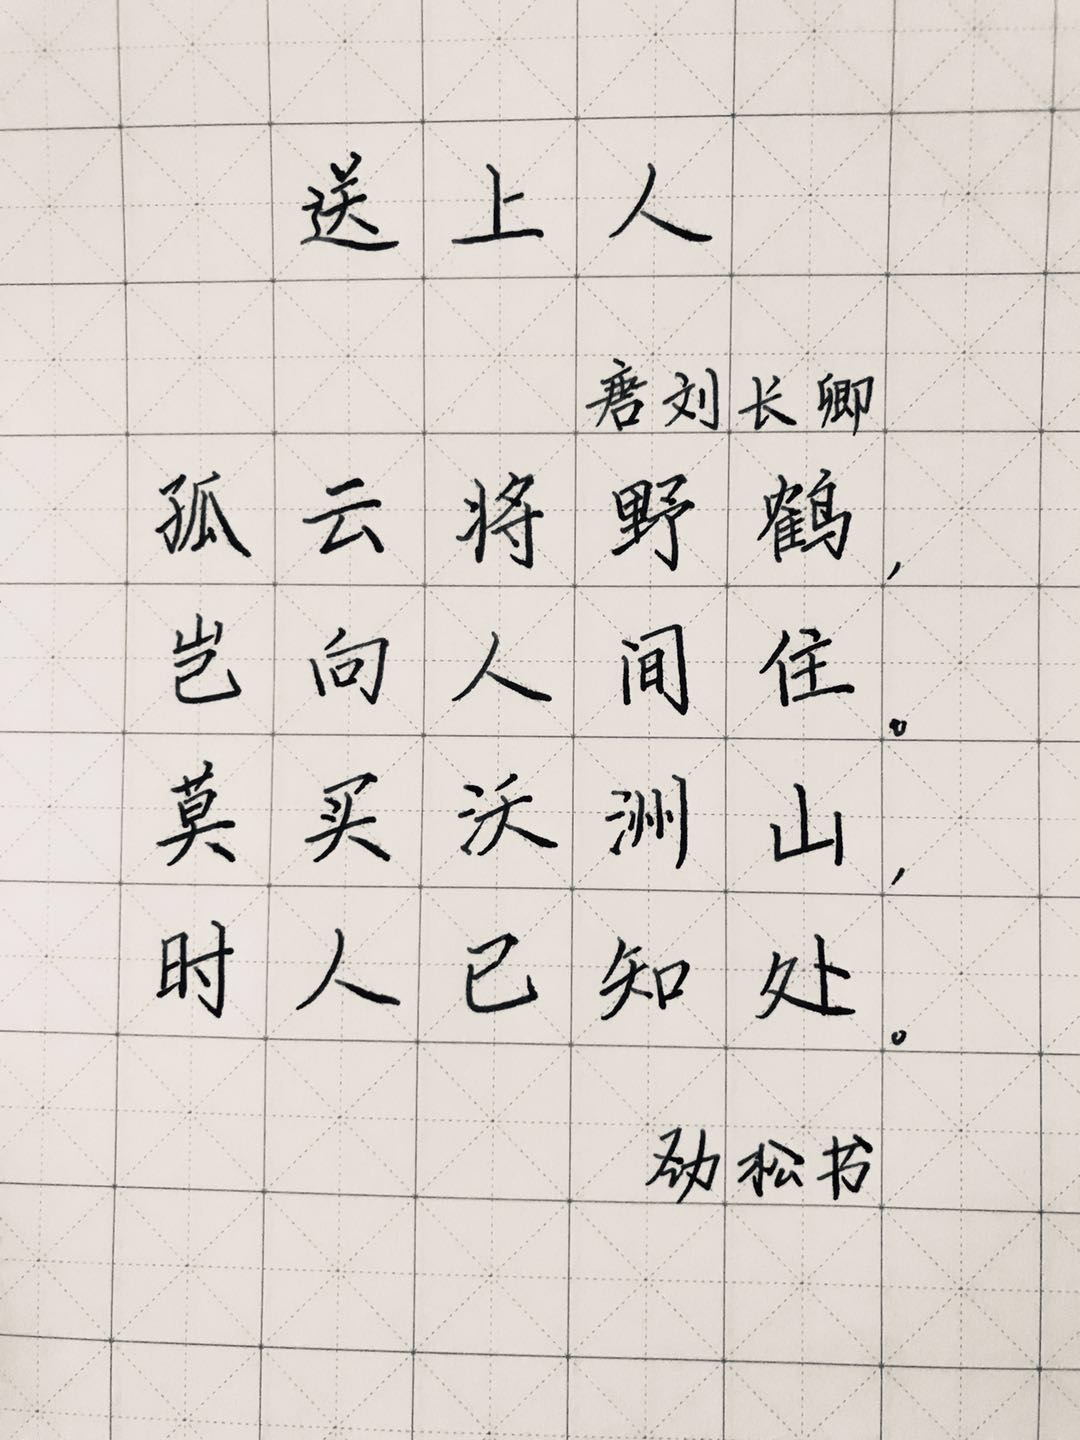 送上人
唐刘长卿
孤云将野鹤,
岂向人间住。
莫买沃洲山,
时人已知处。
劲松书